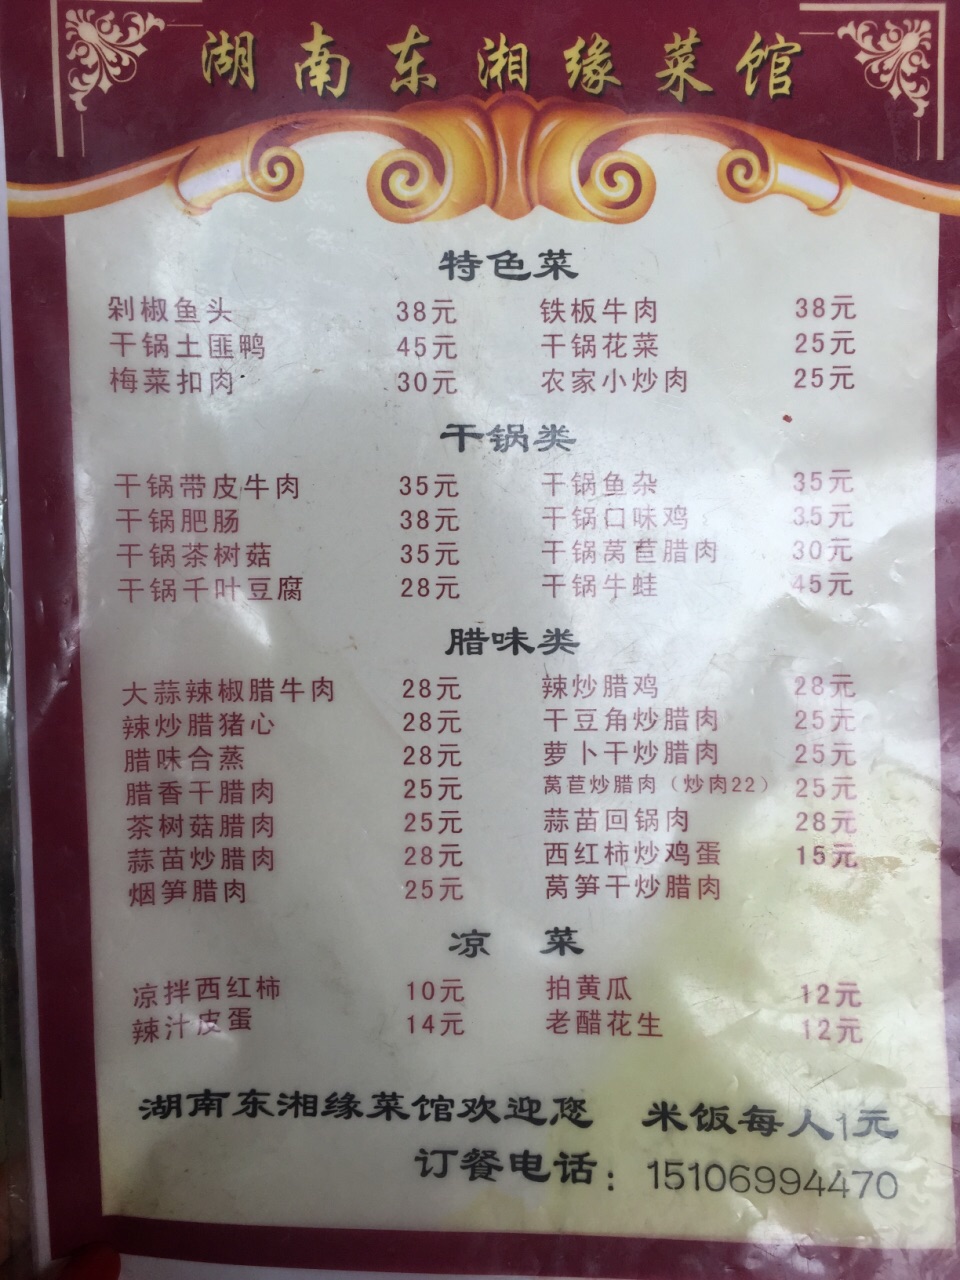 湖南东湘缘菜馆
特色菜
剁椒鱼头 38元 铁板牛肉 38元
干锅土匪鸭 45元 干锅花菜 25元
梅菜扣肉 30元 农家小炒肉 25元
干锅类
干锅带皮牛肉 35元 干锅鱼杂 35元
干锅肥肠 38元 干锅口味鸡 35元
干锅茶树菇 35元 干锅莴苣腊肉 30元
干锅千叶豆腐 28元 干锅牛蛙 45元
腊味类
大蒜辣椒腊牛肉 28元 辣炒腊鸡 28元
辣炒腊猪心 28元 干豆角炒腊肉 25元
腊味合蒸 28元 萝卜干炒腊肉 25元
腊香干腊肉 25元 莴苣炒腊肉（炒肉22） 25元
茶树菇腊肉 25元 蒜苗回锅肉 28元
蒜苗炒腊肉 28元 西红柿炒鸡蛋 15元
烟笋腊肉 25元 莴笋干炒腊肉
凉 菜
凉拌西红柿 10元 拍黄瓜 12元
辣汁皮蛋 14元 老醋花生 12元
湖南东湘缘菜馆欢迎您 米饭每人1元
订餐电话：15106994470